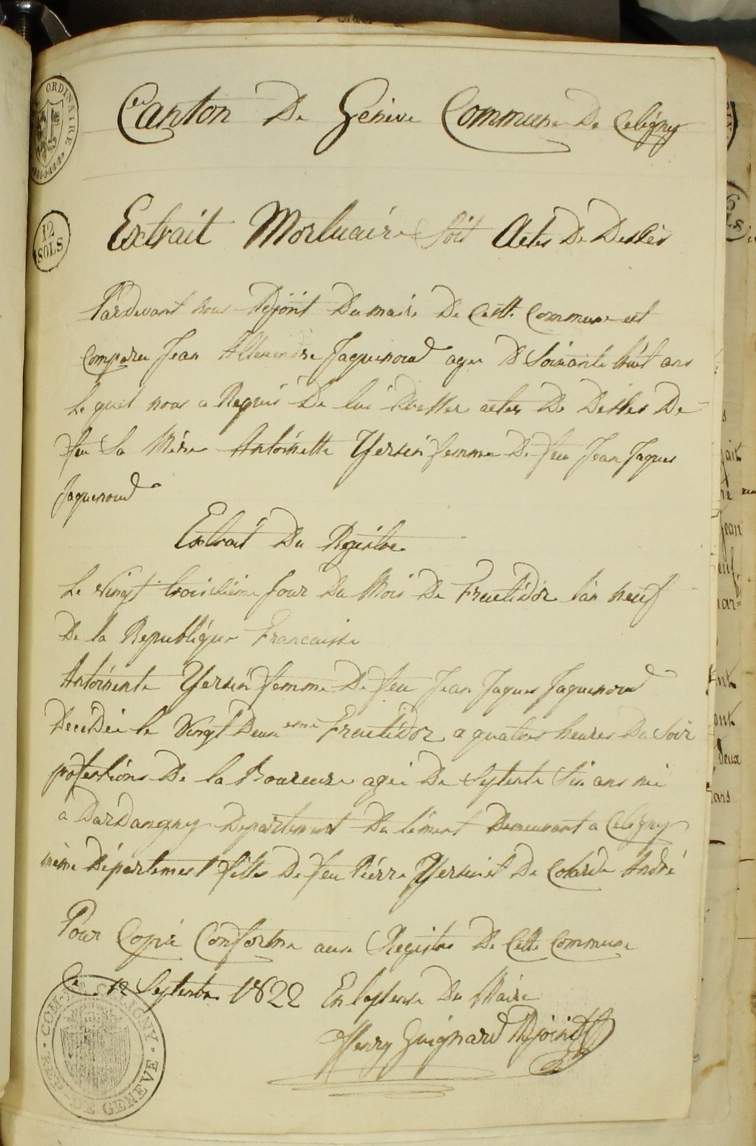 Canton De Genève Commune De Celigny
12
SOLS
Extrait Mortuaire Soit Actes De Dessès
Pardevant nous Adjoint Du maire De Cette Commune est
Comparu Jean Allexandre Jaquenoud agée De Soixante huit ans
Le quel nous a Requis De lui Dresser actes De Dessès De
feu Sa Mère Antoinette Yersin femme De feu Jean Jaques
Jaquenoud
Extrait Du Registre
Le vingt troisième Jour Du Mois De Fructidor l'an neuf
De la Republique Francaise
Antoinente Yersin femme De feu Jean Jaques Jaquenoud
Decédée le Vingt Deux eme Fructidor a quatres heures Du Soir
profession De Laboureure agée De Septente Six ans née
a Dardangny Departement Du Lément Demeurant a Celigny
même Département fille De feu Pierre Yersin et De André
Pour Copie Conforme aux Registre De Cette Commune
Ce 12 Septembre 1822 En Du Maire
Henry Guignard Adjoint
COM. DE CELIGNY
REP. DE GENEVE
ORDINAIRE